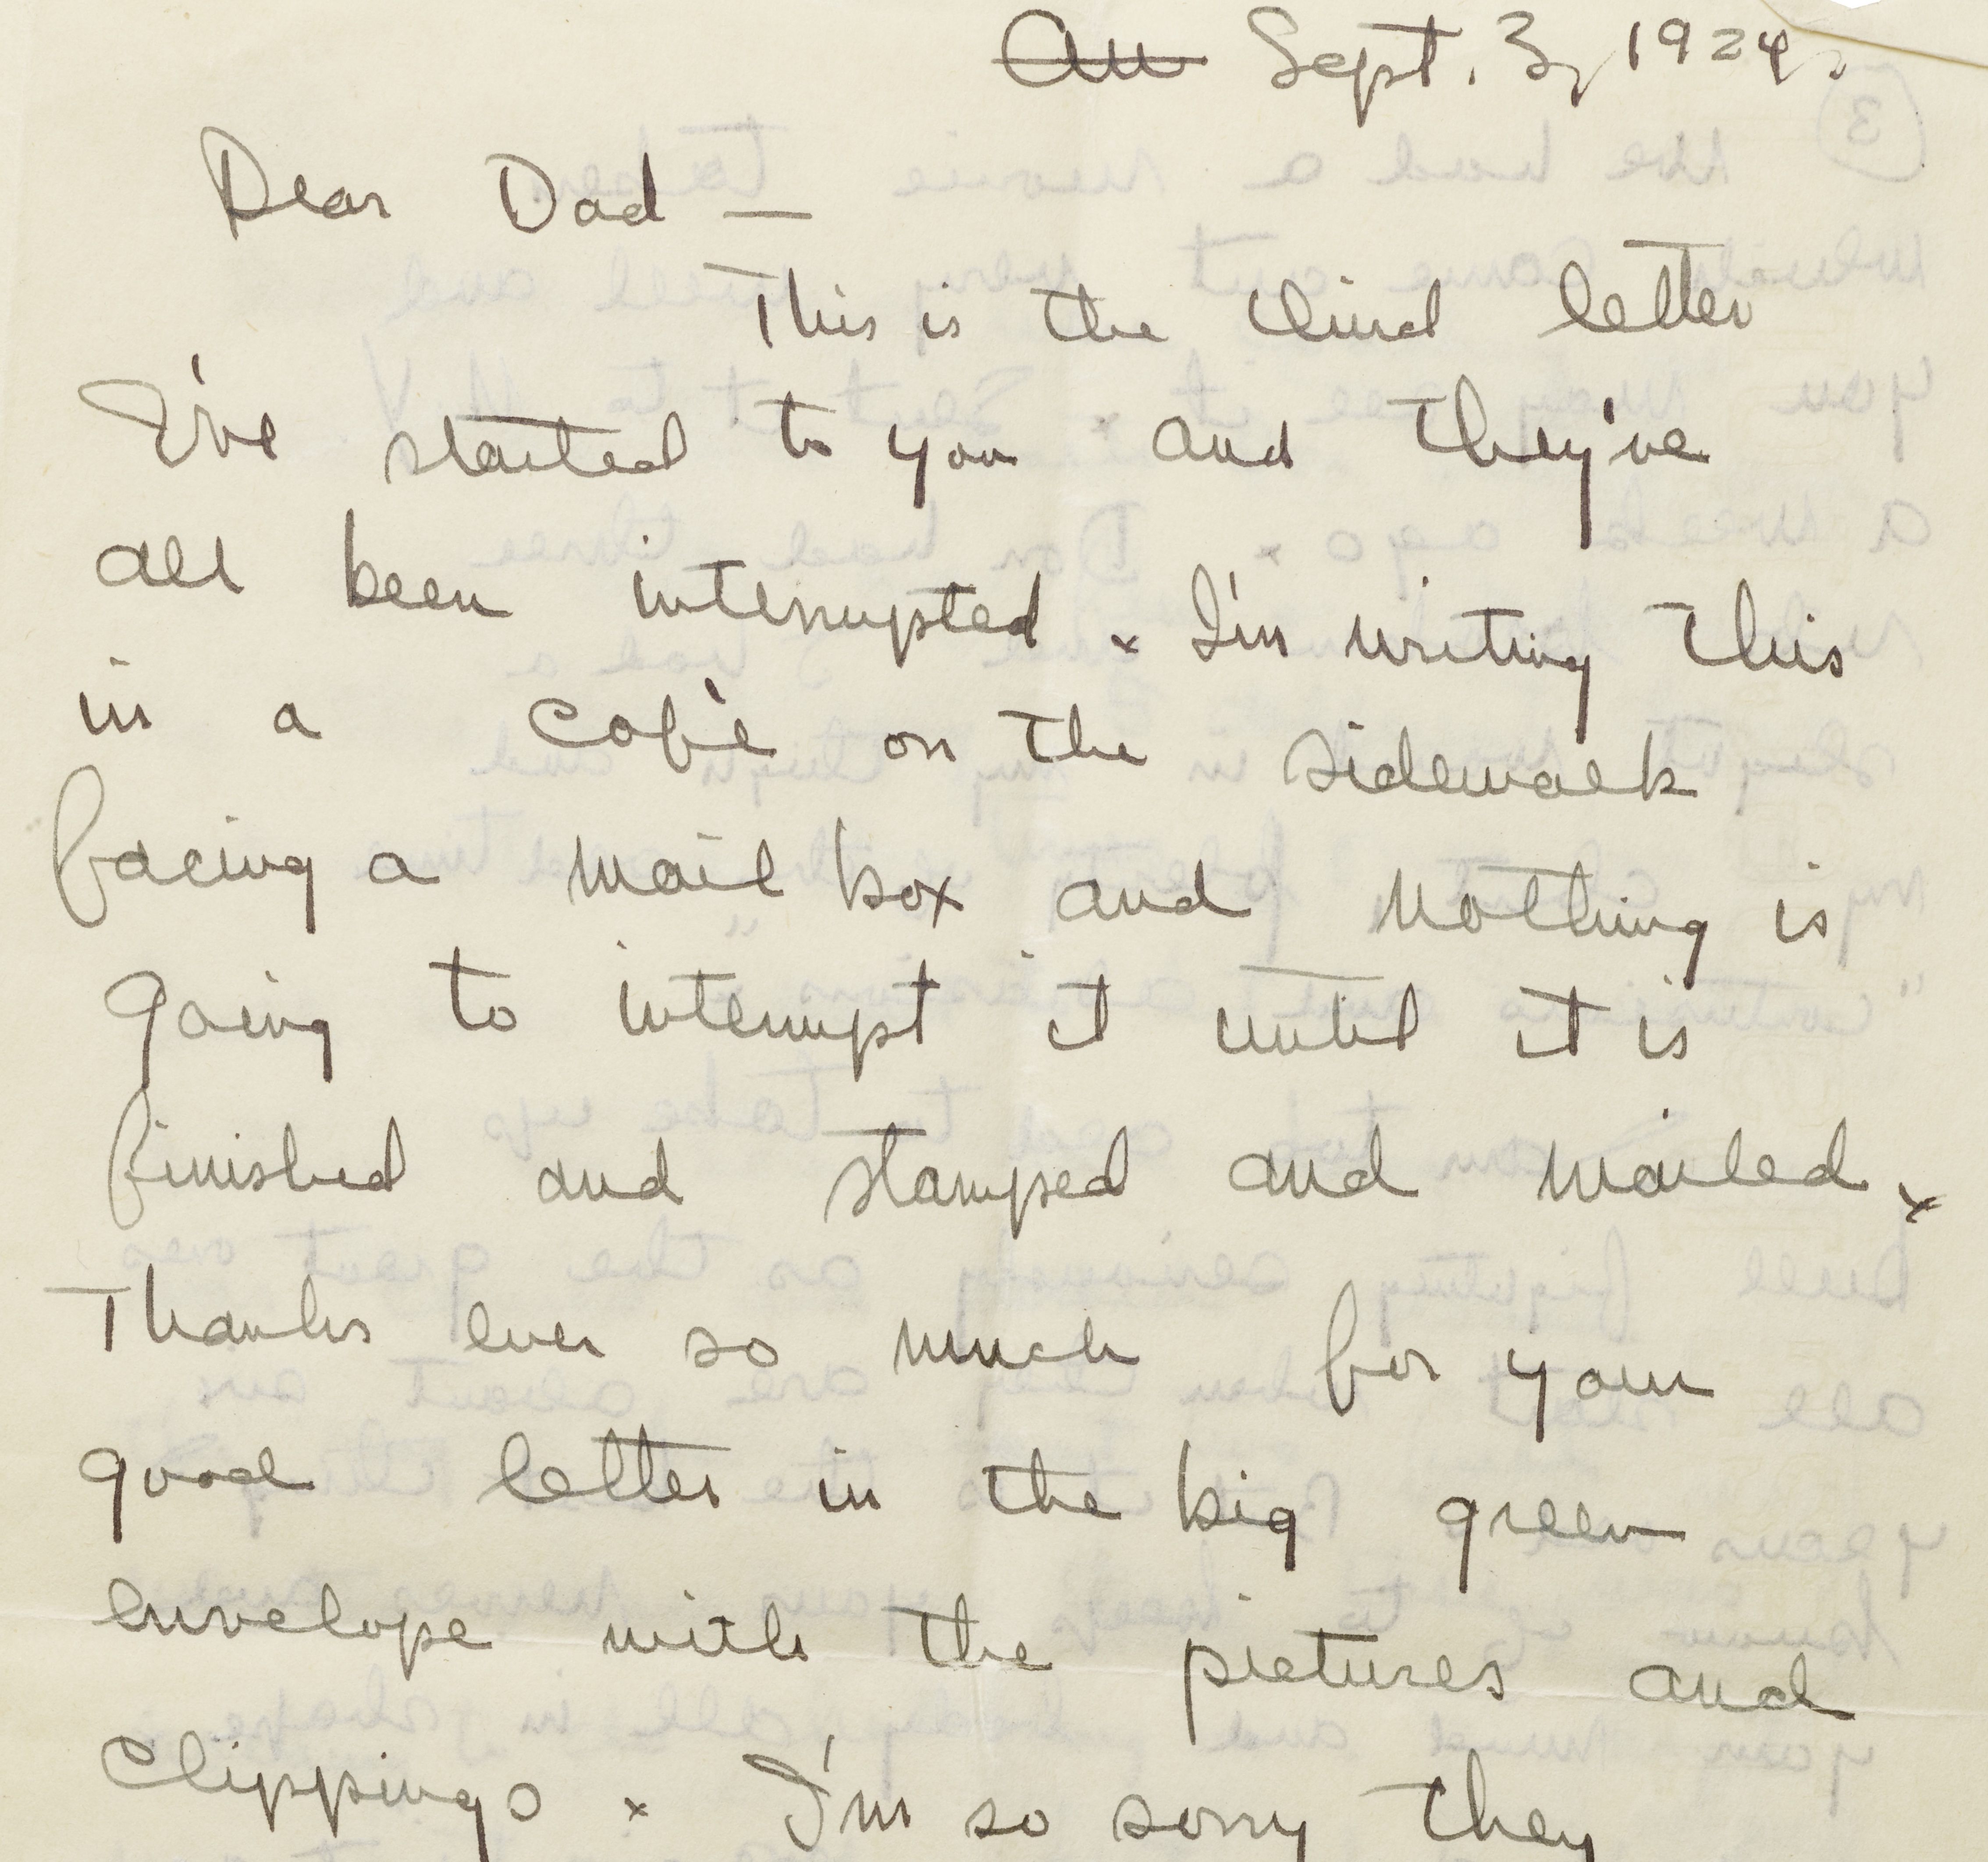 Au Sept. 3, 1924.
Dear Dad —
This is the third letter
I've started to you and they've
all been interrupted x I'm writing this
in a café on the sidewalk
facing a mail box and nothing is
going to interrupt it until it is
finished and stamped and mailed x
Thanks ever so much for your
good letter in the big green
envelope with the pictures and
clippings x I'm so sorry they